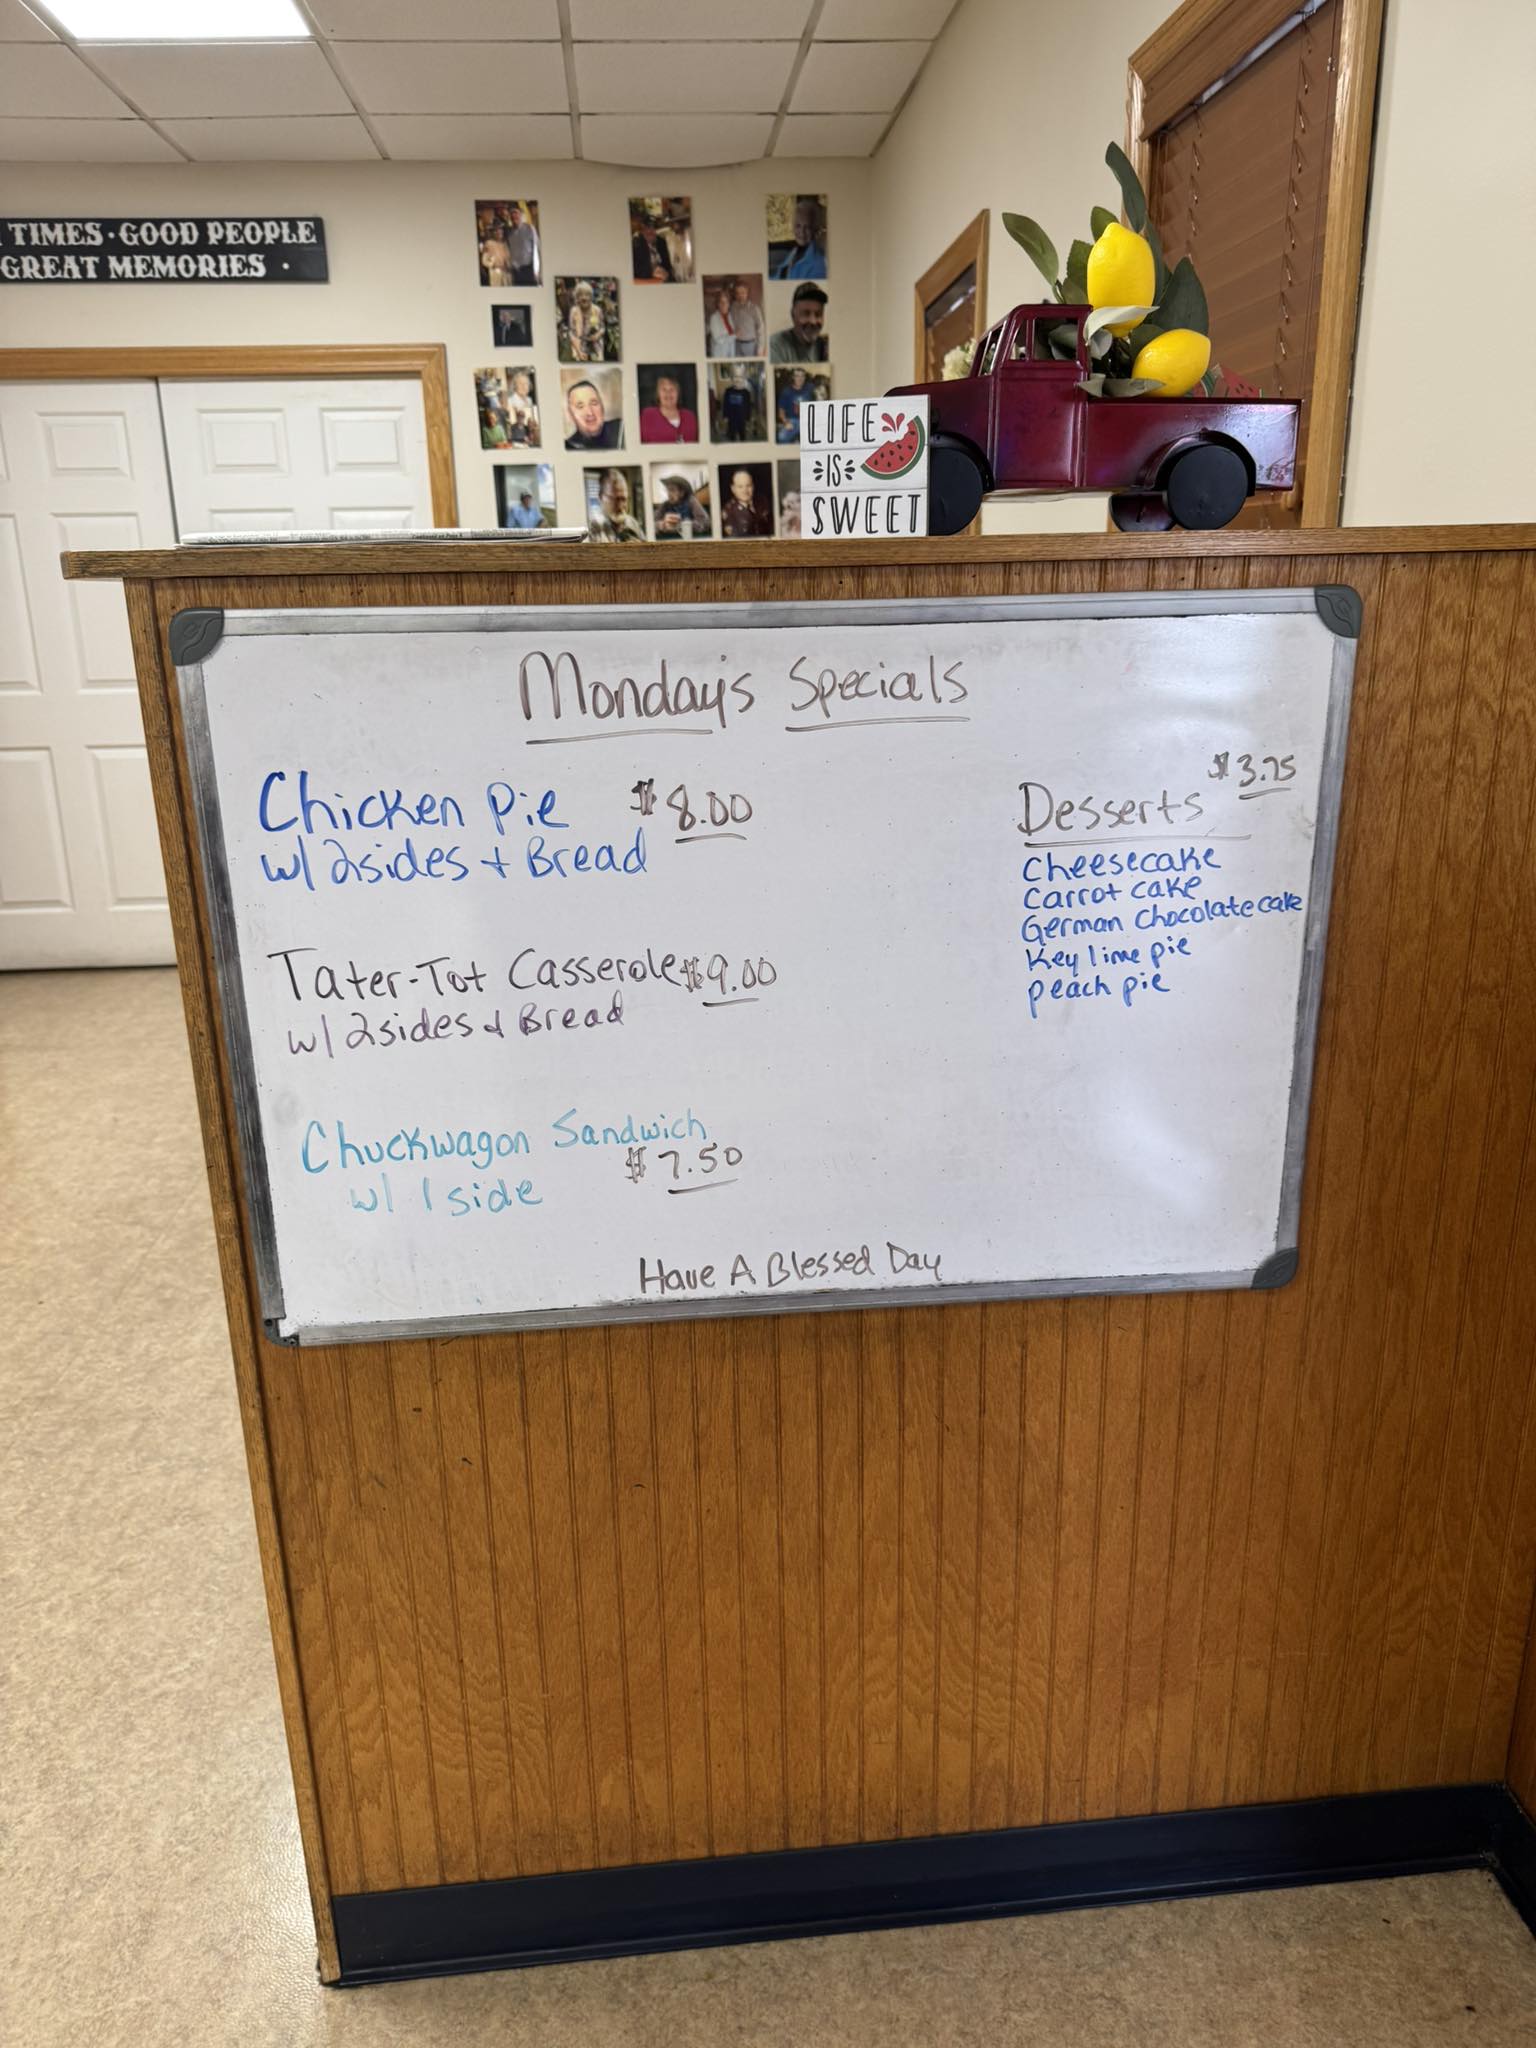 TIMES · GOOD PEOPLE
GREAT MEMORIES ·
LIFE
IS
SWEET
Monday's Specials
Chicken Pie $8.00
w/ 2sides + Bread
Tater-Tot Casserole $9.00
w/ 2sides + Bread
Chuckwagon Sandwich
$7.50
w/ 1 side
$3.75
Desserts
Cheesecake
Carrot cake
German Chocolate cake
Key lime pie
peach pie
Have A Blessed Day